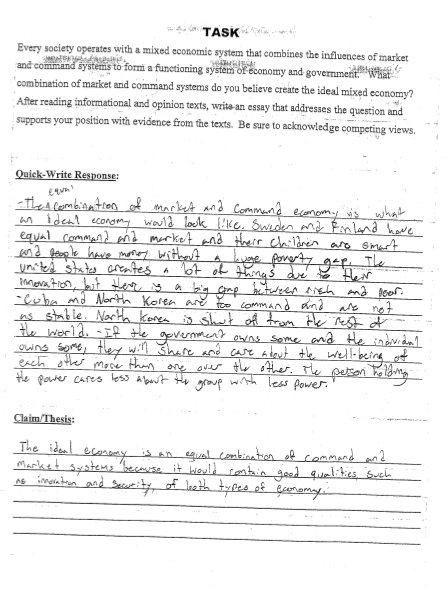 TASK
Every society operates with a mixed economic system that combines the influences of market
and command systems to form a functioning system of economy and government. What
combination of market and command systems do you believe create the ideal mixed economy?
After reading informational and opinion texts, write an essay that addresses the question and
supports your position with evidence from the texts. Be sure to acknowledge competing views.
Quick-Write Response:
equal
- The combination of market and command economy is what
an ideal economy would look like. Sweden and Finland have
equal command and market and their children are smart
and people have money without a huge poverty gap. The
united states creates a lot of things due to their
innovation, but there is a big gap between rich and poor.
- Cuba and North Korea are too command and are not
as stable. North Korea is shut off from the rest of
the world. - If the government owns some and the individual
owns some, they will share and care about the well-being of
each other more than one over the other. The person holding
the power cares less about the group with less power.
Claim/Thesis:
The ideal economy is an equal combination of command and
market systems because it would contain good qualities, such
as innovation and security, of both types of economy.